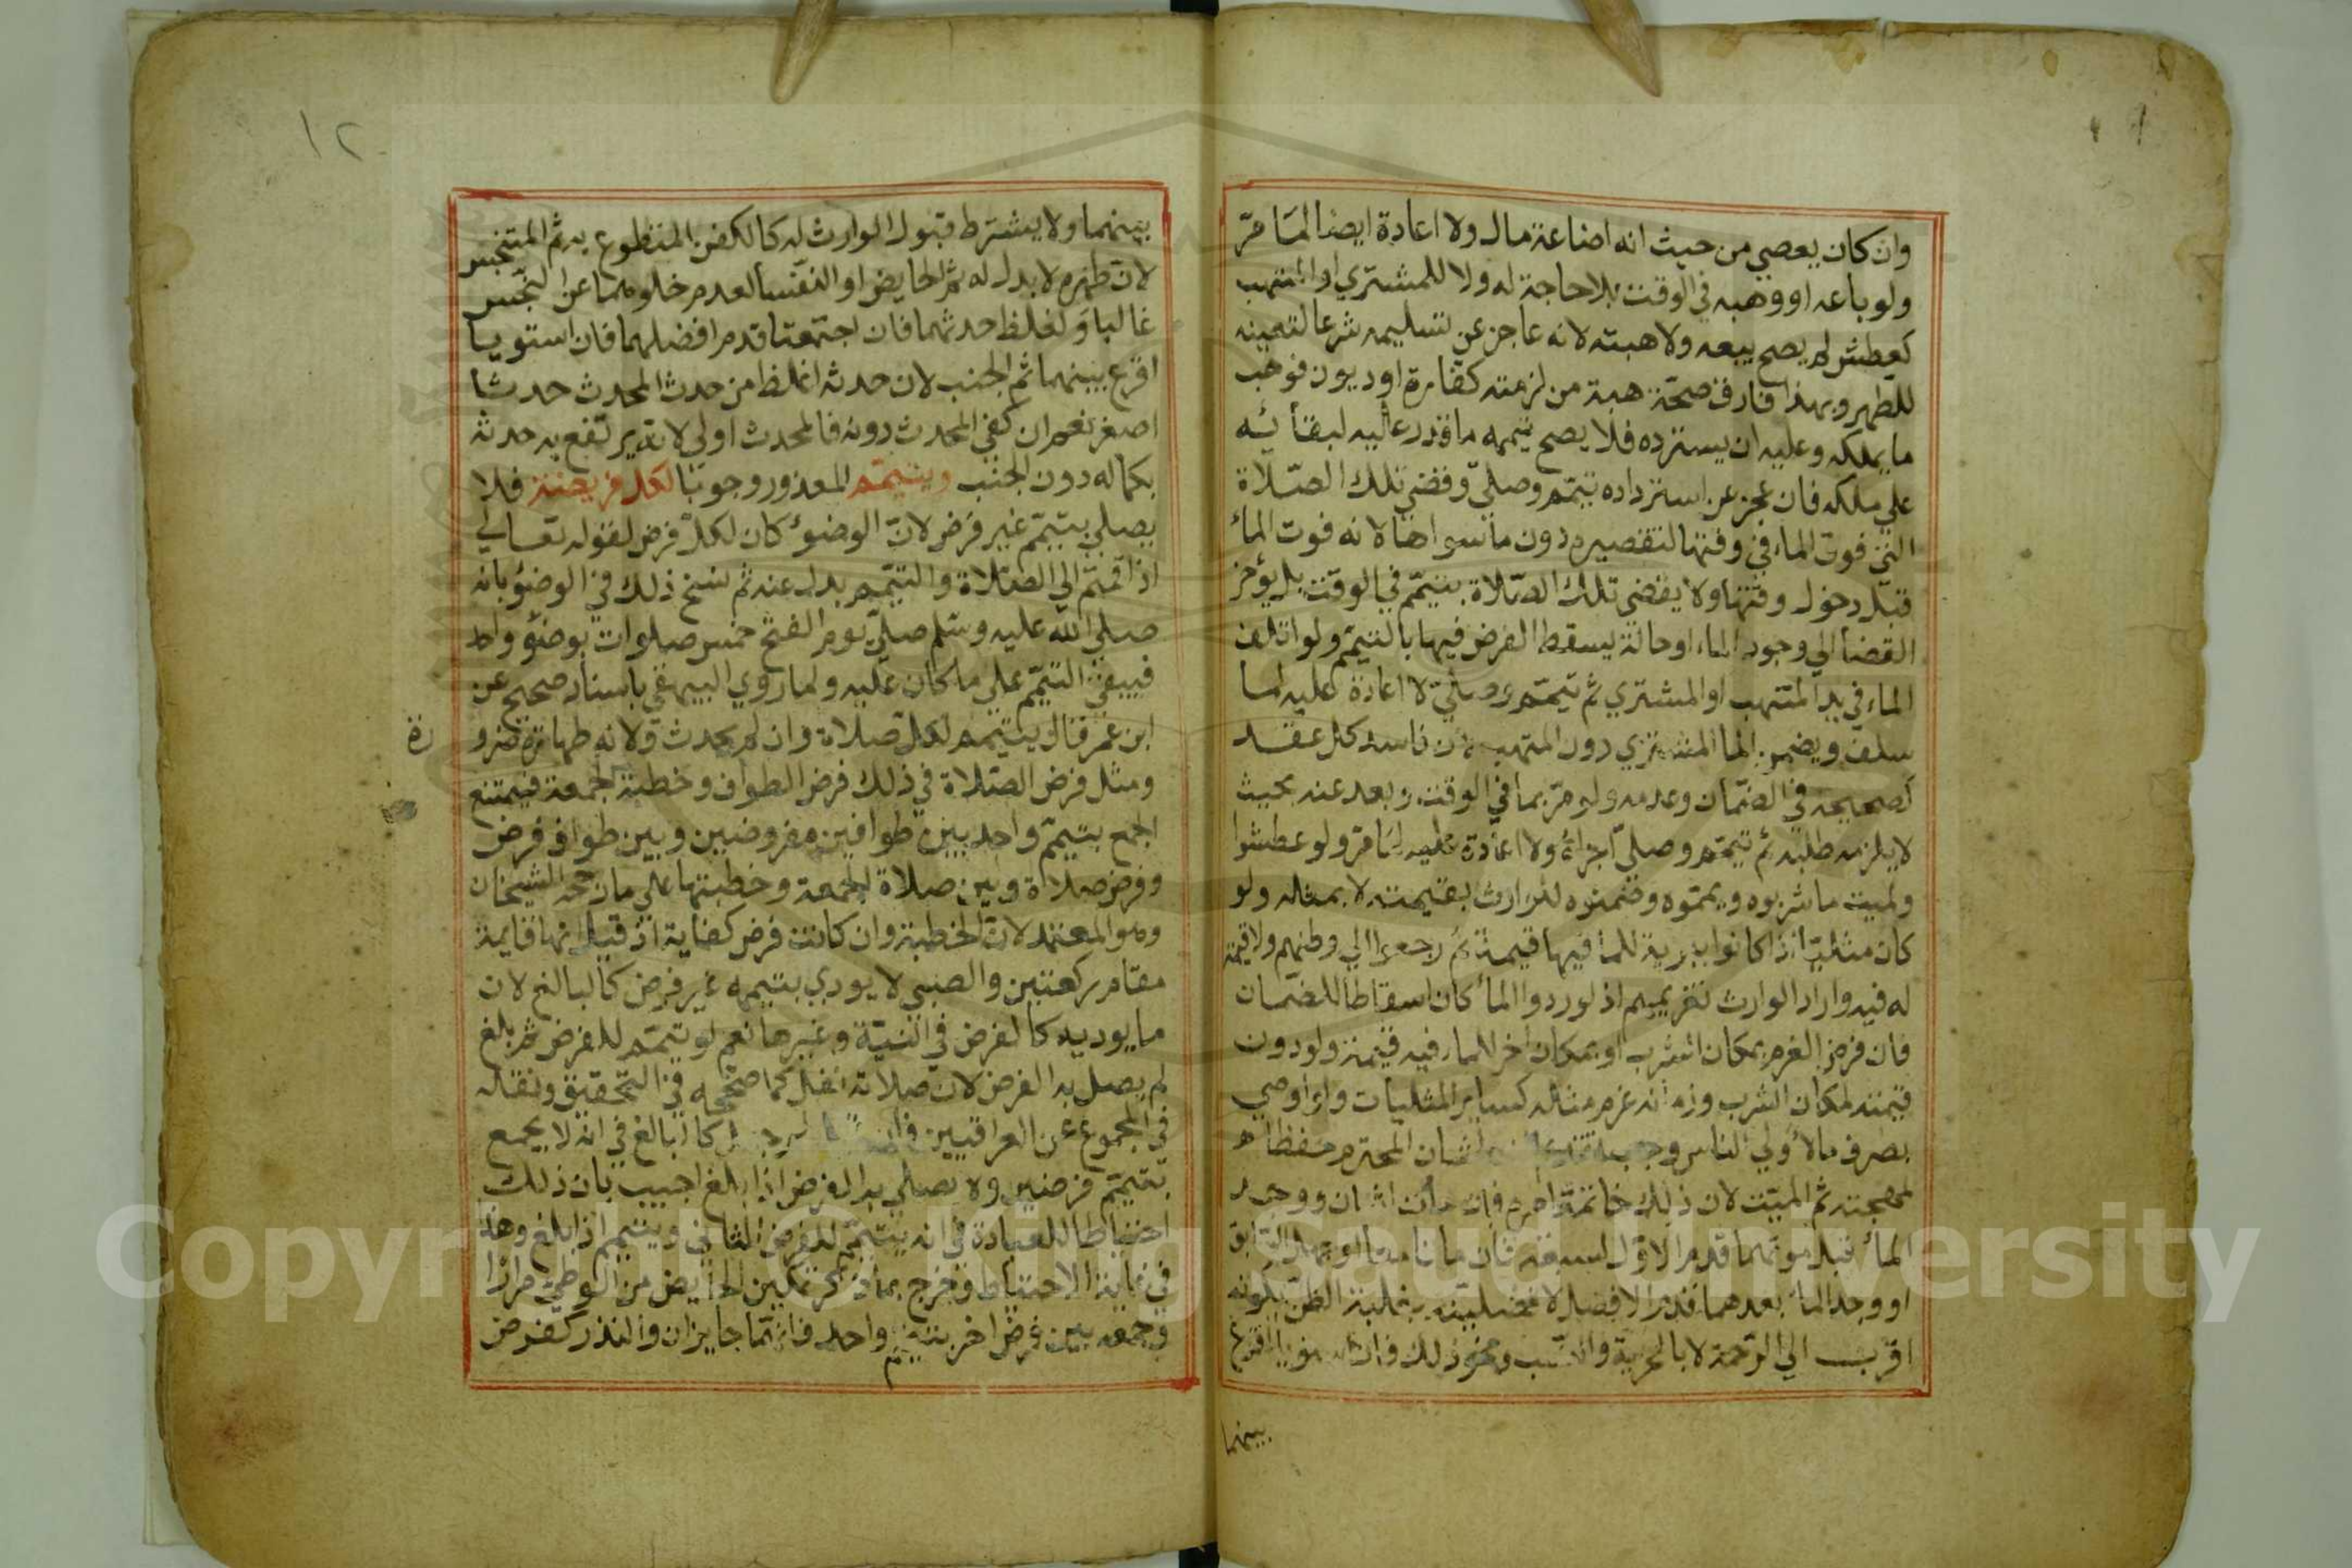 وان كان يعصي من حيث انه اضاعة مال ولا اعادة ايضا لما مرّ
ولو باعه او وهبه في الوقت بلا حاجة له ولا للمشتري او المتهب
كعطش لم يصح بيعه ولا هبته لانه عاجز عن تسليمه شرعا لتعينه
للطهر وبهذا فارق صحّة هبة من لزمته كفارة او ديون فوهب
ما يملكه وعليه ان يسترده فلا يصح تيممه ما قدر عليه لبقائه
علي ملكه فان عجز عن استرداده تيمّم وصلّي وقضي تلك الصّلاة
التي فوت الماء في وقتها لتقصيره دون ما سواها لانه فوت الماء
قبل دخول وقتها ولا يقضي تلك الصّلاة بتيمّم في الوقت بل يؤخر
القضاء الي وجود الماء او حالة يسقط الفرض فيها بالتيمّم ولو اتلف
الماء في يد المتهب او المشتري ثم تيمّم وصلّي لا اعادة عليه لما
سلف ويضمن الماء المشتري دون المتهب لان فاسد كل عقد
كصحيحه في الضّمان وعدمه ولو مرّ بماء في الوقت وبعد عنه بحيث
لا يلزمه طلبه ثم تيمّم وصلّي اجزاه ولا اعادة عليه لما مرّ ولو عطشوا
ولميت ماء شربوه ويمّموه وضمنوه للوارث بقيمته لا بمثله ولو
كان مثليّا اذا كانوا ببرية للماء فيها قيمة ثم رجعوا الي وطنهم ولا قيمة
له فيه واراد الوارث تغريمهم اذ لو ردوا الماء كان اسقاطا للضمان
فان فرض الغرم بمكان الشرب او بمكان اخر للماء فيه قيمة ولو دون
قيمته لمكان الشرب وزمانه غرم مثله كساير المثليات ولو اوصي
بصرف ماء لأولي الناس وجب تقديم العطشان المحترم حفظا
لمهجته ثم الميّت لان ذلك خاتمة امره فان مات اثنان ووجد
الماء قبل موتهما قدم الاوّل لسبقه فان ماتا معا او جهل السّابق
او وجد الماء بعدهما قدم الافضل لافضليّته بغلبة الظنّ بكونه
اقرب الي الرّحمة لا بالحريّة والنّسب ونحو ذلك فان استويا اقرع
بينهما
١٢
بينهما ولا يشترط قبول الوارث له كالكفن المتطوع به ثم المتنجّس
لانّ طهره لا بدل له ثم الحايض او النّفسا لعدم خلوهما عن النّجس
غالبا ولغلظ حدثهما فان اجتمعتا قدم افضلهما فان استويا
اقرع بينهما ثم الجنب لان حدثه اغلظ من حدث المحدث حدثا
اصغر نعم ان كفي المحدث دونه فالمحدث اولي لانه يرتفع به حدثه
بكماله دون الجنب ويتيمّم المعذور وجوبا لكل فريضة فلا
يصلي بتيمّم غير فرض لانّ الوضوء كان لكلّ فرض لقوله تعالي
اذا قمتم الي الصّلاة والتيمّم بدل عنه ثم نسخ ذلك في الوضوء بانه
صلي الله عليه وسلم صلّي يوم الفتح خمس صلوات بوضوء واحد
فيبقي التيمّم علي ما كان عليه ولما روي البيهقي باسناد صحيح عن
ابن عمر قال يتيمّم لكلّ صلاة وان لم يحدث ولانه طهارة ضرو
رة
ومثل فرض الصّلاة في ذلك فرض الطواف وخطبة الجمعة فيمتنع
الجمع بتيمّم واحد بين طوافين مفروضين وبين طواف فرض
وفرض صلاة وبين صلاة الجمعة وخطبتها علي ما رجّحه الشيخان
وهو المعتمد لانّ الخطبة وان كانت فرض كفاية اذ قيل انها قايمة
مقام ركعتين والصبي لا يودي بتيممه غير فرض كالبالغ لان
ما يوديه كالفرض في النيّة وغيرها نعم لو تيمّم للفرض ثم بلغ
لم يصل به الفرض لان صلاته نفل كما صحّحه في التحقيق ونقله
في المجموع عن العراقيين فان كالبالغ في انه لا يجمع
بتيمّم فرضين ولا يصلي به الفرض اذا بلغ اجيب بان ذلك
احتياطا للعبادة في انه يتيمّم للفرض الثاني ويتيمم اذا بلغ وهذا
في غاية الاحتياط وخرج بما ذكر تمكين الحايض من الوطئ مرارا
وجمعه بين فرض اخر بتيمّم واحد فانّهما جايزان والنذر كفرض
Copyright © King Saud University